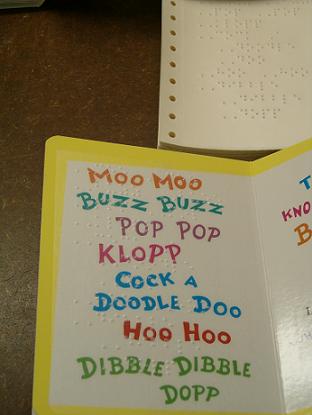 MOO MOO
BUZZ BUZZ
POP POP
KLOPP
COCK A
DOODLE DOO
HOO HOO
DIBBLE DIBBLE
DOPP